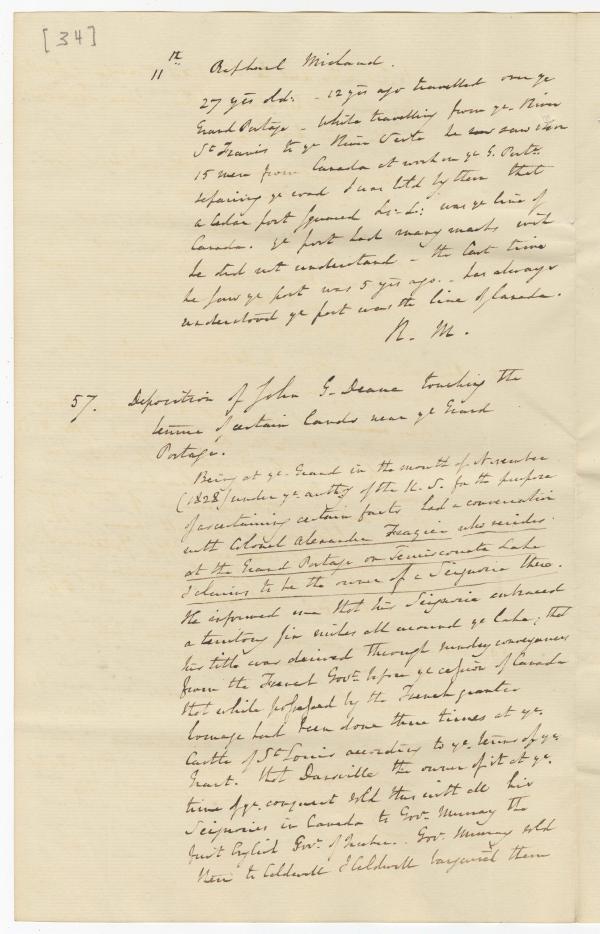 [34]
11th Raphael Michaud.
27 yrs old: - 12 yrs ago travelled over ye
Grand Portage - While travelling from ye River
St Francis to ye River Verte he saw
15 men from Canada at work on ye G. Porte
repairing ye road & was told by them that
a Cedar post squared was ye line of
Canada. ye post had many marks wich
he did not understand - the last time
he saw ye post was 5 yrs ago. - has always
understood ye post was the line of Canada.
R. M.
57. Deposition of John G. Deane touching the
tenure of certain Lands near ye Grand
Portage.
Being at ye Grand in the month of November
(1828) under ye authy of the U. S. for the purpose
of ascertaining certain facts had a conversation
with Colonel Alexander Frazier who resides
at the Grand Portage on Temisconata Lake
& claims to be the owner of a Seignorie there.
He informed me that his Seignorie embraced
a territory six miles all around ye Lake; that
his title was derived through sunday conveyances
from the French Govt before ye cession of Canada
that while possessed by the French grantee
homage had been done three times at ye
Castle of St Louis according to ye terms of ye
Grant. that Danville the owner of it at ye
time of ye conquest sold this with all his
Seignories in Canada to Govr Murray the
first English Govr of Quebec. Govr Murray sold
them to Caldwell & Caldwell conveyed them